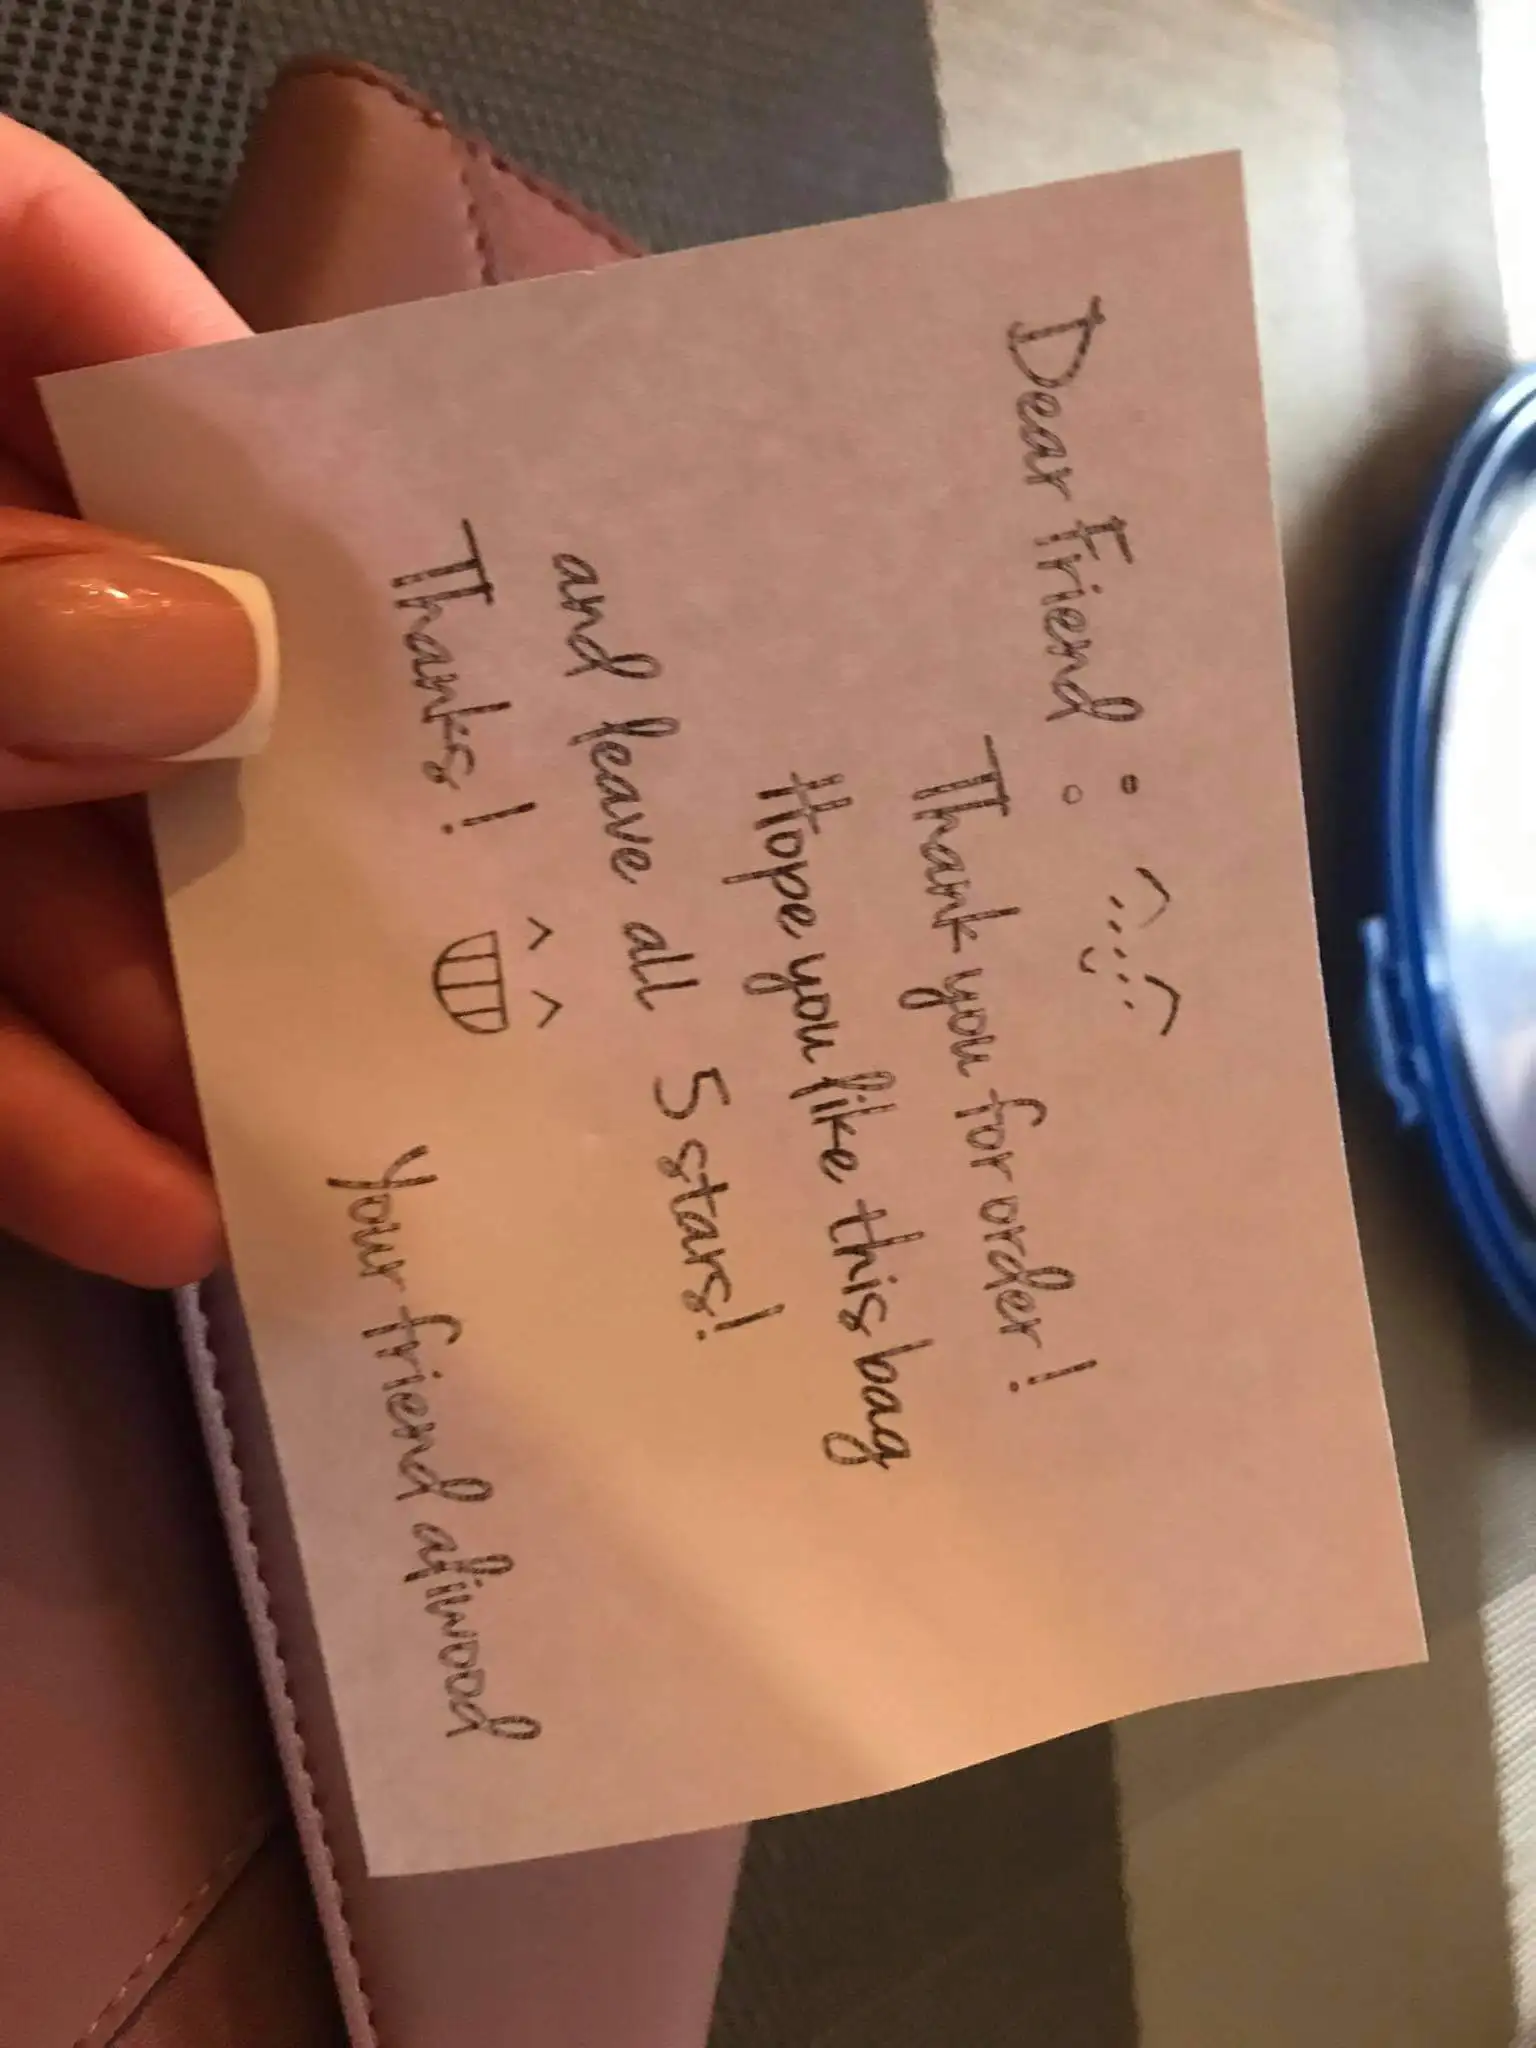 Dear Friend :
Thank you for order!
Hope you like this bag
and leave all 5 stars!
Thanks!
Your friend afiwood